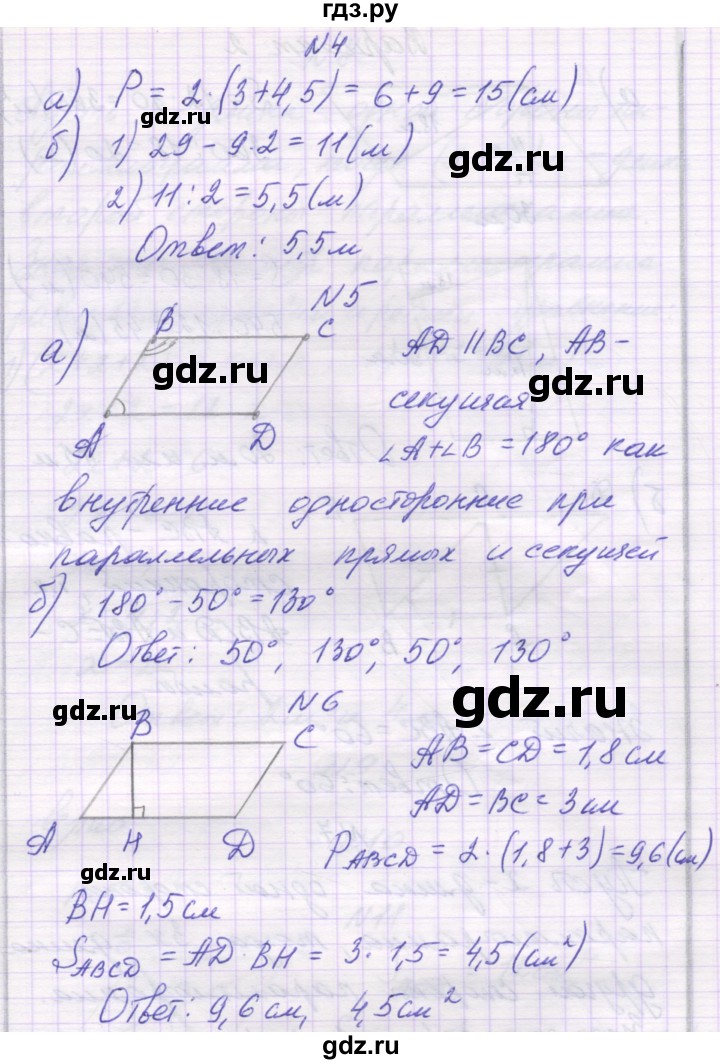 гдз.ру
N4
а) P = 2·(3+4,5) = 6+9 = 15(см)
gdz.ru
б) 1) 29 - 9·2 = 11(м)
gdz.ru
2) 11 : 2 = 5,5(м)
gdz.ru
Ответ: 5,5м
N5
а)
B
C
A
D
gdz.ru
AD || BC, AB-
gdz.ru
секущая
∠A+∠B = 180° как
внутренние односторонние при
параллельных прямых и секущей
б) 180° - 50° = 130°
Ответ: 50°, 130°, 50°, 130°
gdz.ru
gdz.ru
N6
B
C
A
H
D
AB = CD = 1,8см
AD = BC = 3см
P ABCD = 2·(1,8+3) = 9,6(см)
gdz.ru
gdz.ru
BH = 1,5см
S ABCD = AD·BH = 3·1,5 = 4,5(см²)
Ответ: 9,6см, 4,5см²
gdz.ru
gdz.ru